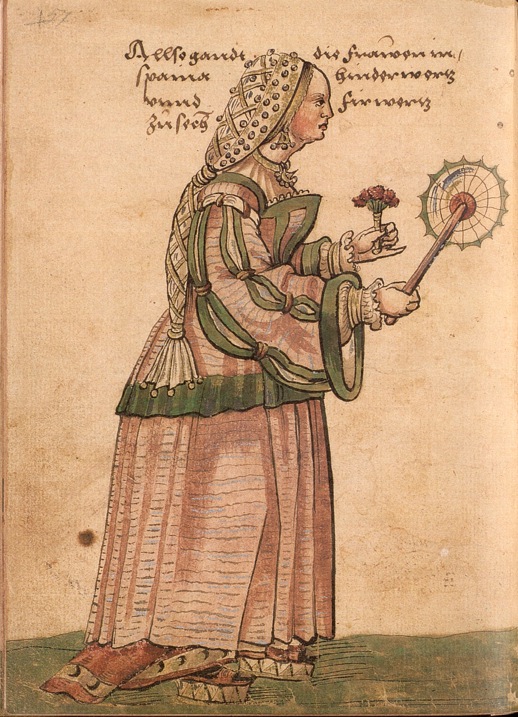 Allso gandt die frawen in
spania hinderwertz
vnnd firwertz